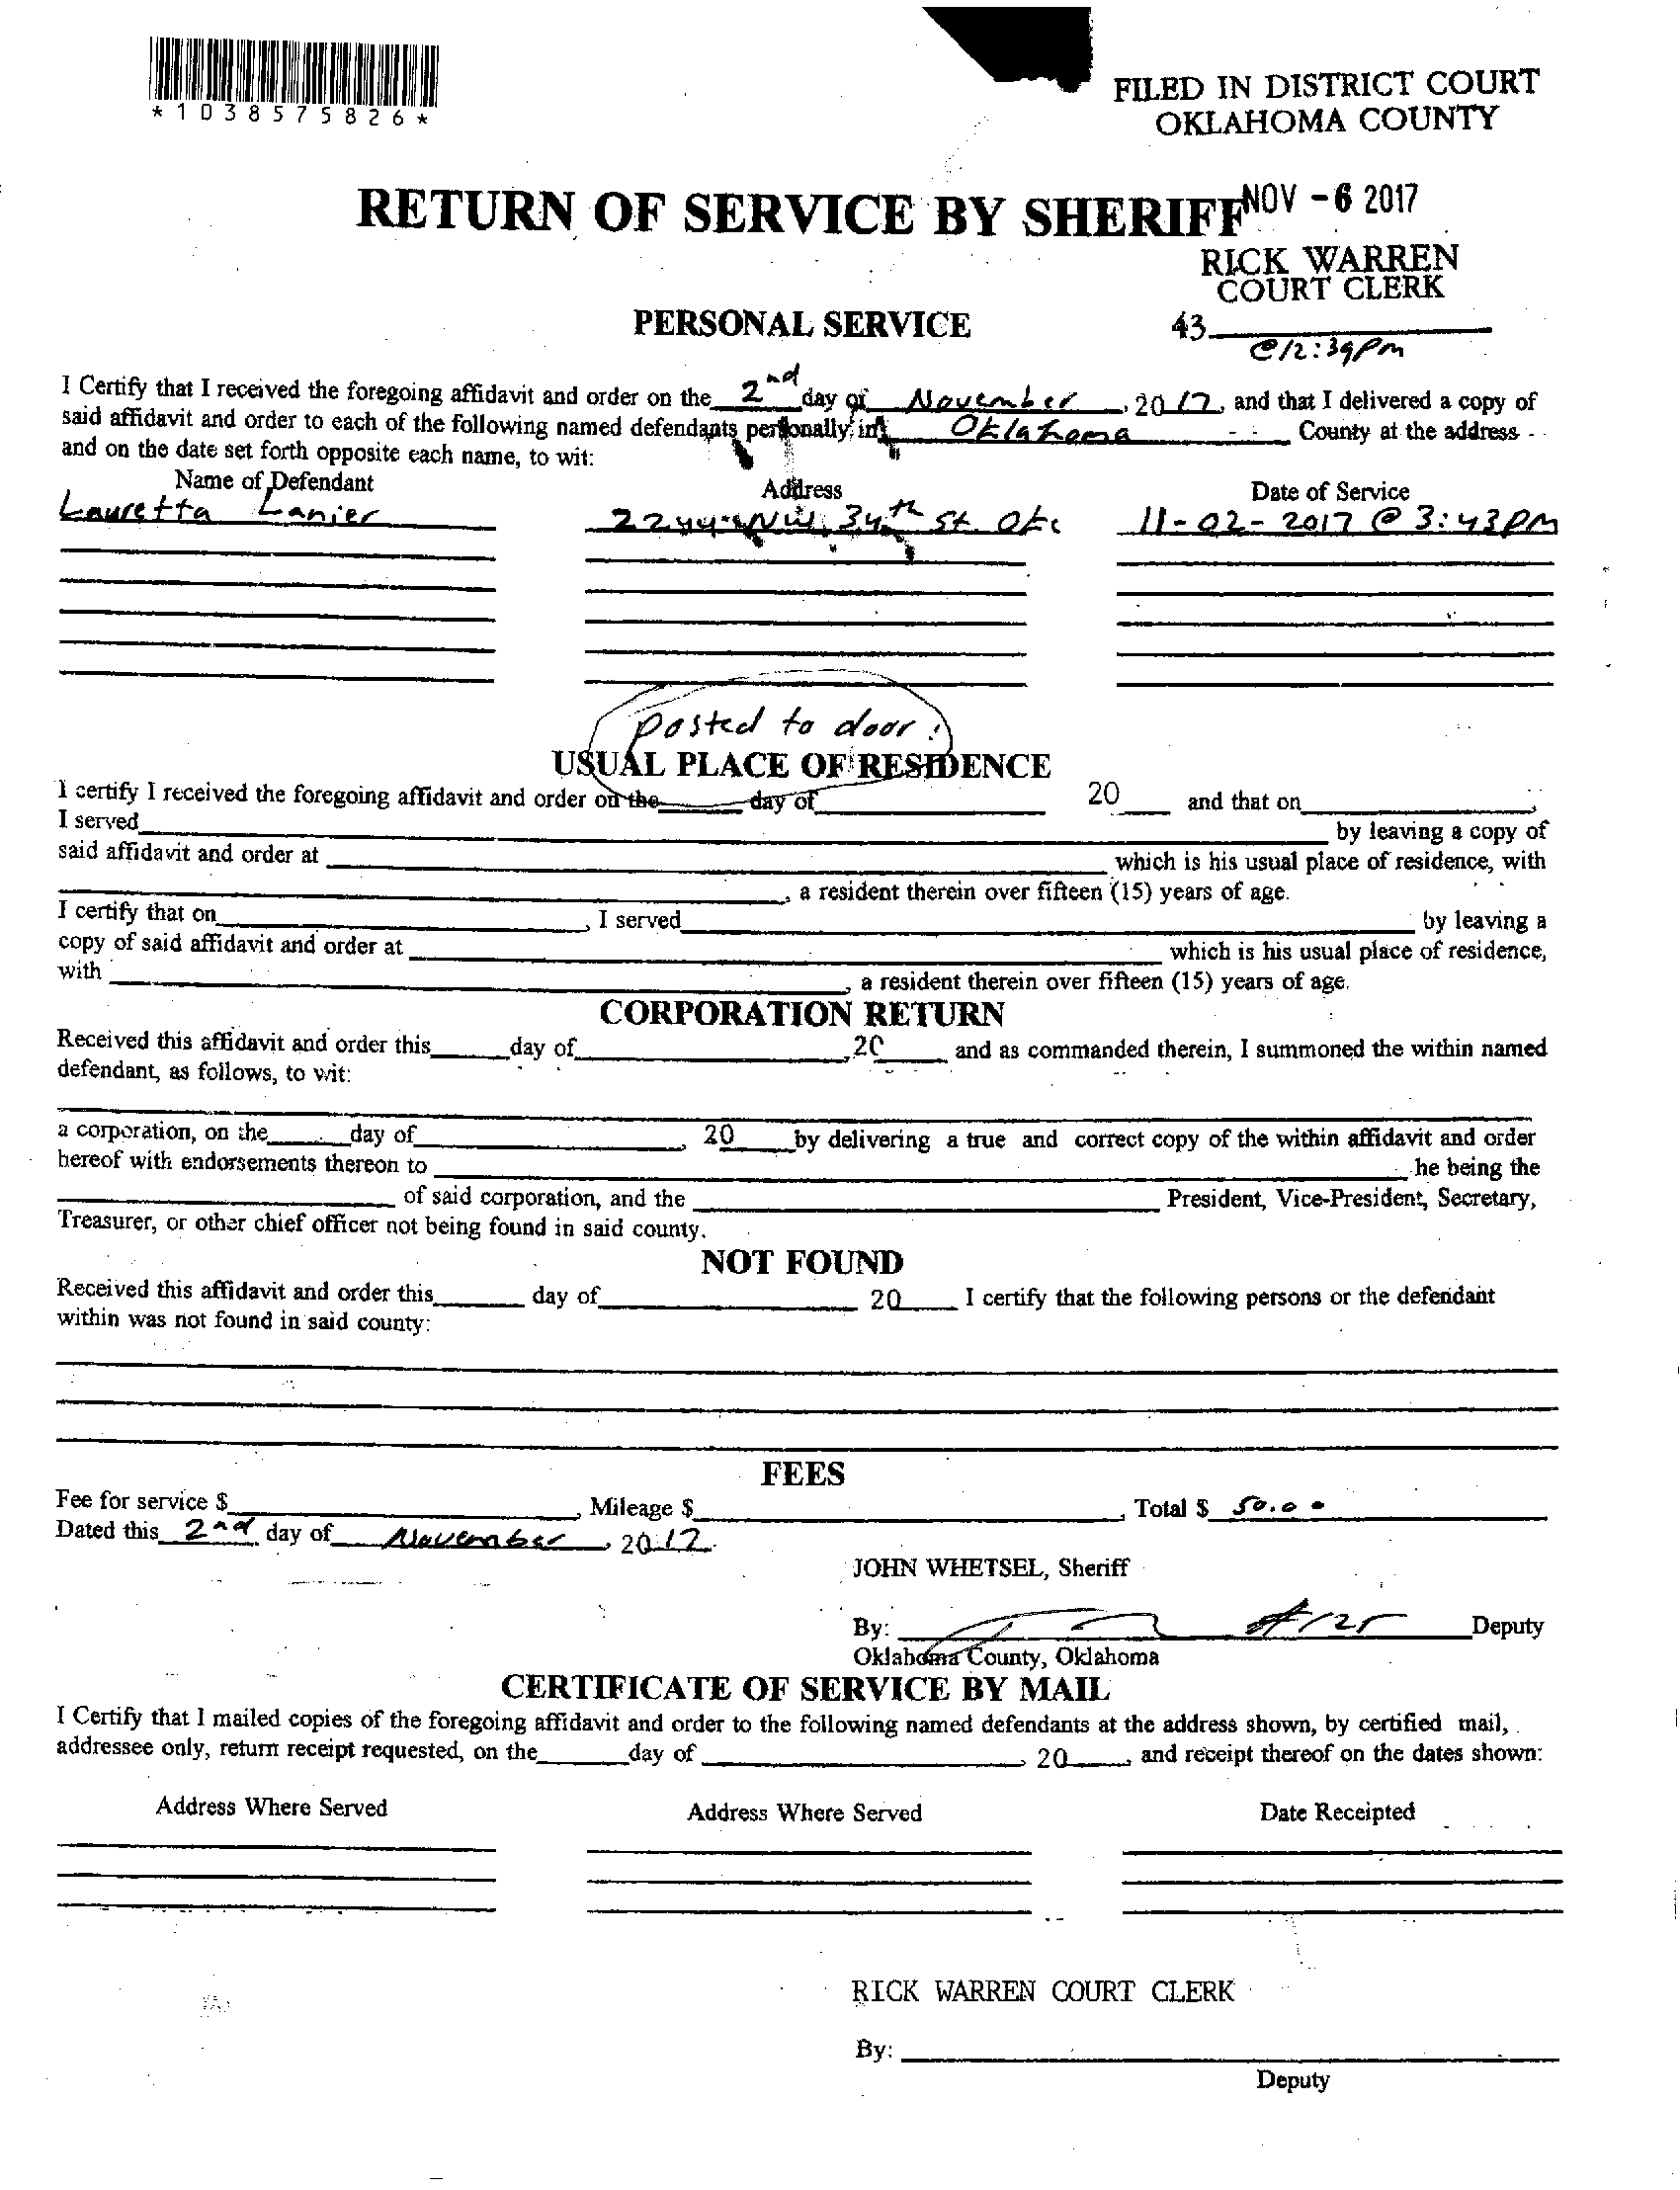 *1038575826*
FILED IN DISTRICT COURT
OKLAHOMA COUNTY
RETURN OF SERVICE BY SHERIFF
NOV - 6 2017
RICK WARREN
COURT CLERK
PERSONAL SERVICE
43
@12:39pm
I Certify that I received the foregoing affidavit and order on the 2nd day of November, 2017, and that I delivered a copy of
said affidavit and order to each of the following named defendants personally in Oklahoma County at the address
and on the date set forth opposite each name, to wit:
Name of Defendant Address Date of Service
Lauretta Lanier 2244 NW 34th St. Okc 11-02-2017 @ 3:43PM
posted to door!
USUAL PLACE OF RESIDENCE
I certify I received the foregoing affidavit and order on the ____ day of ____ 20____ and that on ____,
I served ____ by leaving a copy of
said affidavit and order at ____ which is his usual place of residence, with
____, a resident therein over fifteen (15) years of age.
I certify that on ____, I served ____ by leaving a
copy of said affidavit and order at ____ which is his usual place of residence,
with ____, a resident therein over fifteen (15) years of age.
CORPORATION RETURN
Received this affidavit and order this ____ day of ____, 20____ and as commanded therein, I summoned the within named
defendant, as follows, to wit:
a corporation, on the ____ day of ____, 20____ by delivering a true and correct copy of the within affidavit and order
hereof with endorsements thereon to ____ he being the
____ of said corporation, and the ____ President, Vice-President, Secretary,
Treasurer, or other chief officer not being found in said county.
NOT FOUND
Received this affidavit and order this ____ day of ____ 20____ I certify that the following persons or the defendant
within was not found in said county:
FEES
Fee for service $____, Mileage $____, Total $ 50.00
Dated this 2nd day of November, 2017.
JOHN WHETSEL, Sheriff
By: #125 Deputy
Oklahoma County, Oklahoma
CERTIFICATE OF SERVICE BY MAIL
I Certify that I mailed copies of the foregoing affidavit and order to the following named defendants at the address shown, by certified mail,
addressee only, return receipt requested, on the ____ day of ____, 20____, and receipt thereof on the dates shown:
Address Where Served Address Where Served Date Receipted
RICK WARREN COURT CLERK
By: ____
Deputy